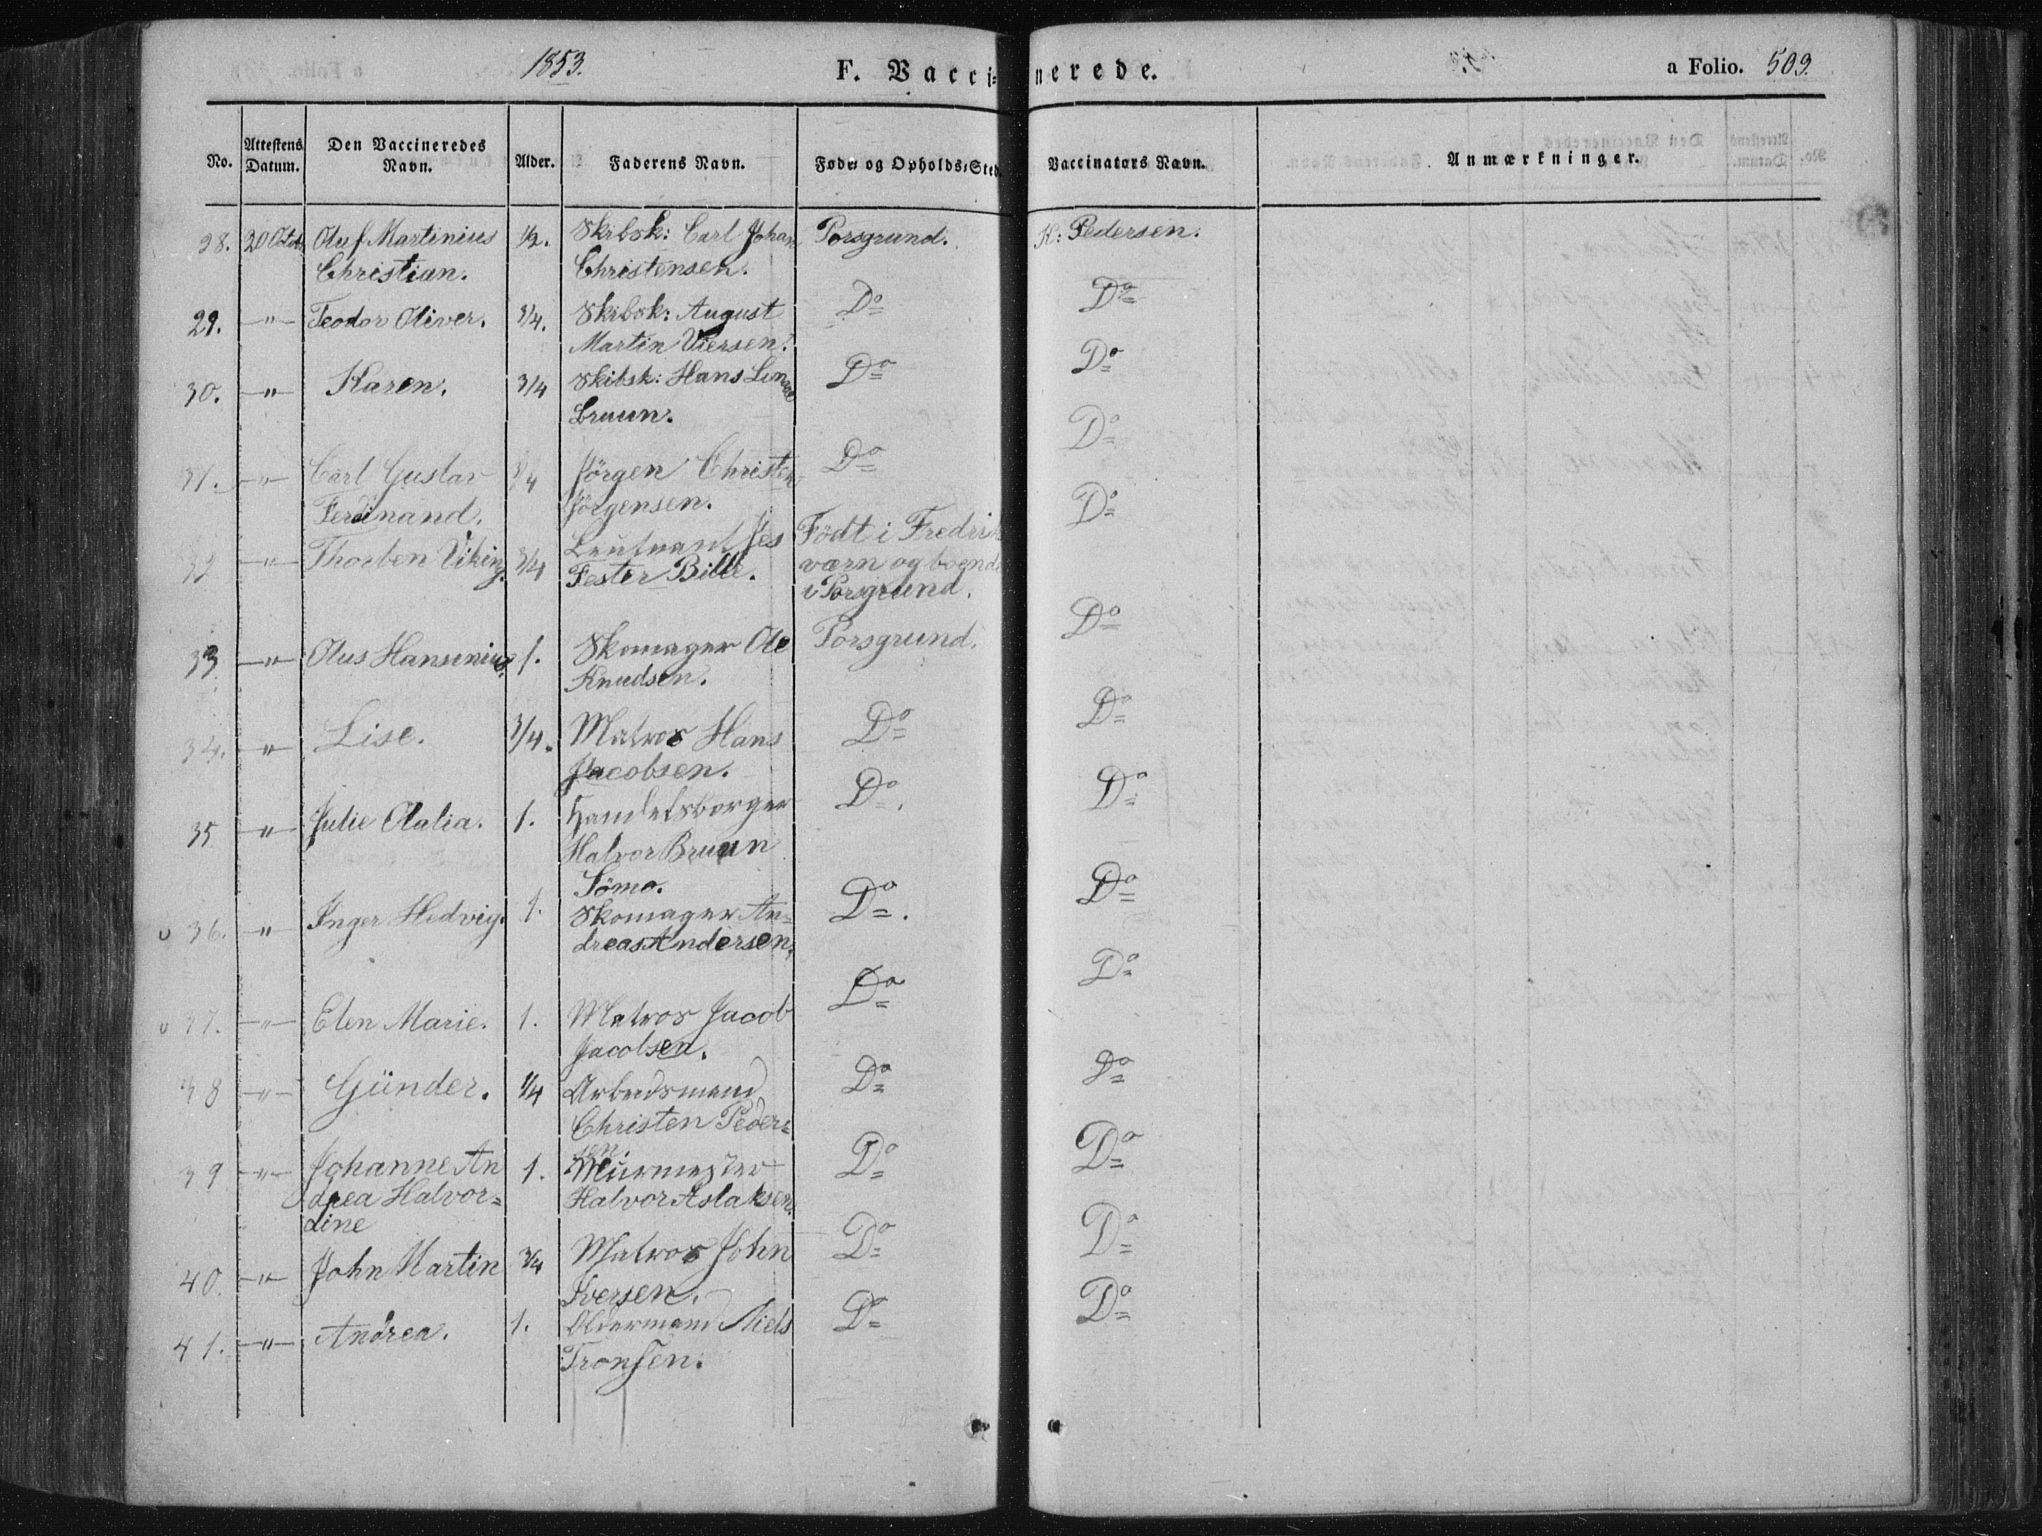 1853. F. Vaccinerede. a Folio. 509.
No. Attestens Datum. Den Vaccineredes Navn. Alder. Faderens Navn. Føde- og Opholds-Sted Vaccinators Navn. Anmærkninger.
28. 20 Octob Oluf Martinius 1/2. Skibsk: Carl Johan Porsgrund. K: Pedersen.
Christian. Christensen.
29. -"- Teodor Oliver. 3/4. Skibsk: August Do Do
Martin Iversen.
30. -"- Karen. 3/4 Skibsk: Hans Do Do
Bruun.
31. -"- Carl Gustav 3/4 Jörgen Christen Do Do
Ferdinand. Jörgensen.
32 -"- Thorben Viking. 3/4 Leutnant Jes Födt i Fredriks Do
Fester Bille. værn og boende
i Porsgrund.
33 -"- Olus Hansinius. 1. Skomager Ole Porsgrund. Do
Knudsen.
34. " Lise. 3/4. Matros Hans Do Do
Jacobsen.
35 -"- Julie Olalia. 1. Handelsborger Do. Do
Halvor Bruun
Tömo.
36. " Inger Hedvig. 1. Skomager An= Do. Do
dreas Andersen.
37. -"- Elen Marie. 1. Matros Jacob Do Do
Jacobsen.
38 -"- Günder. 1/4 Arbeidsmand Do Do
Christen Peder=
sen.
39 -"- Johanne An 1. Muurmester Do Do
drea Halvor= Halvor Aslaksen.
dine
40. -"- John Martin 3/4 Matros John Do Do
Iversen.
41. -"- Andrea. 1. Oldermand Niels Do Do
Tronsen.